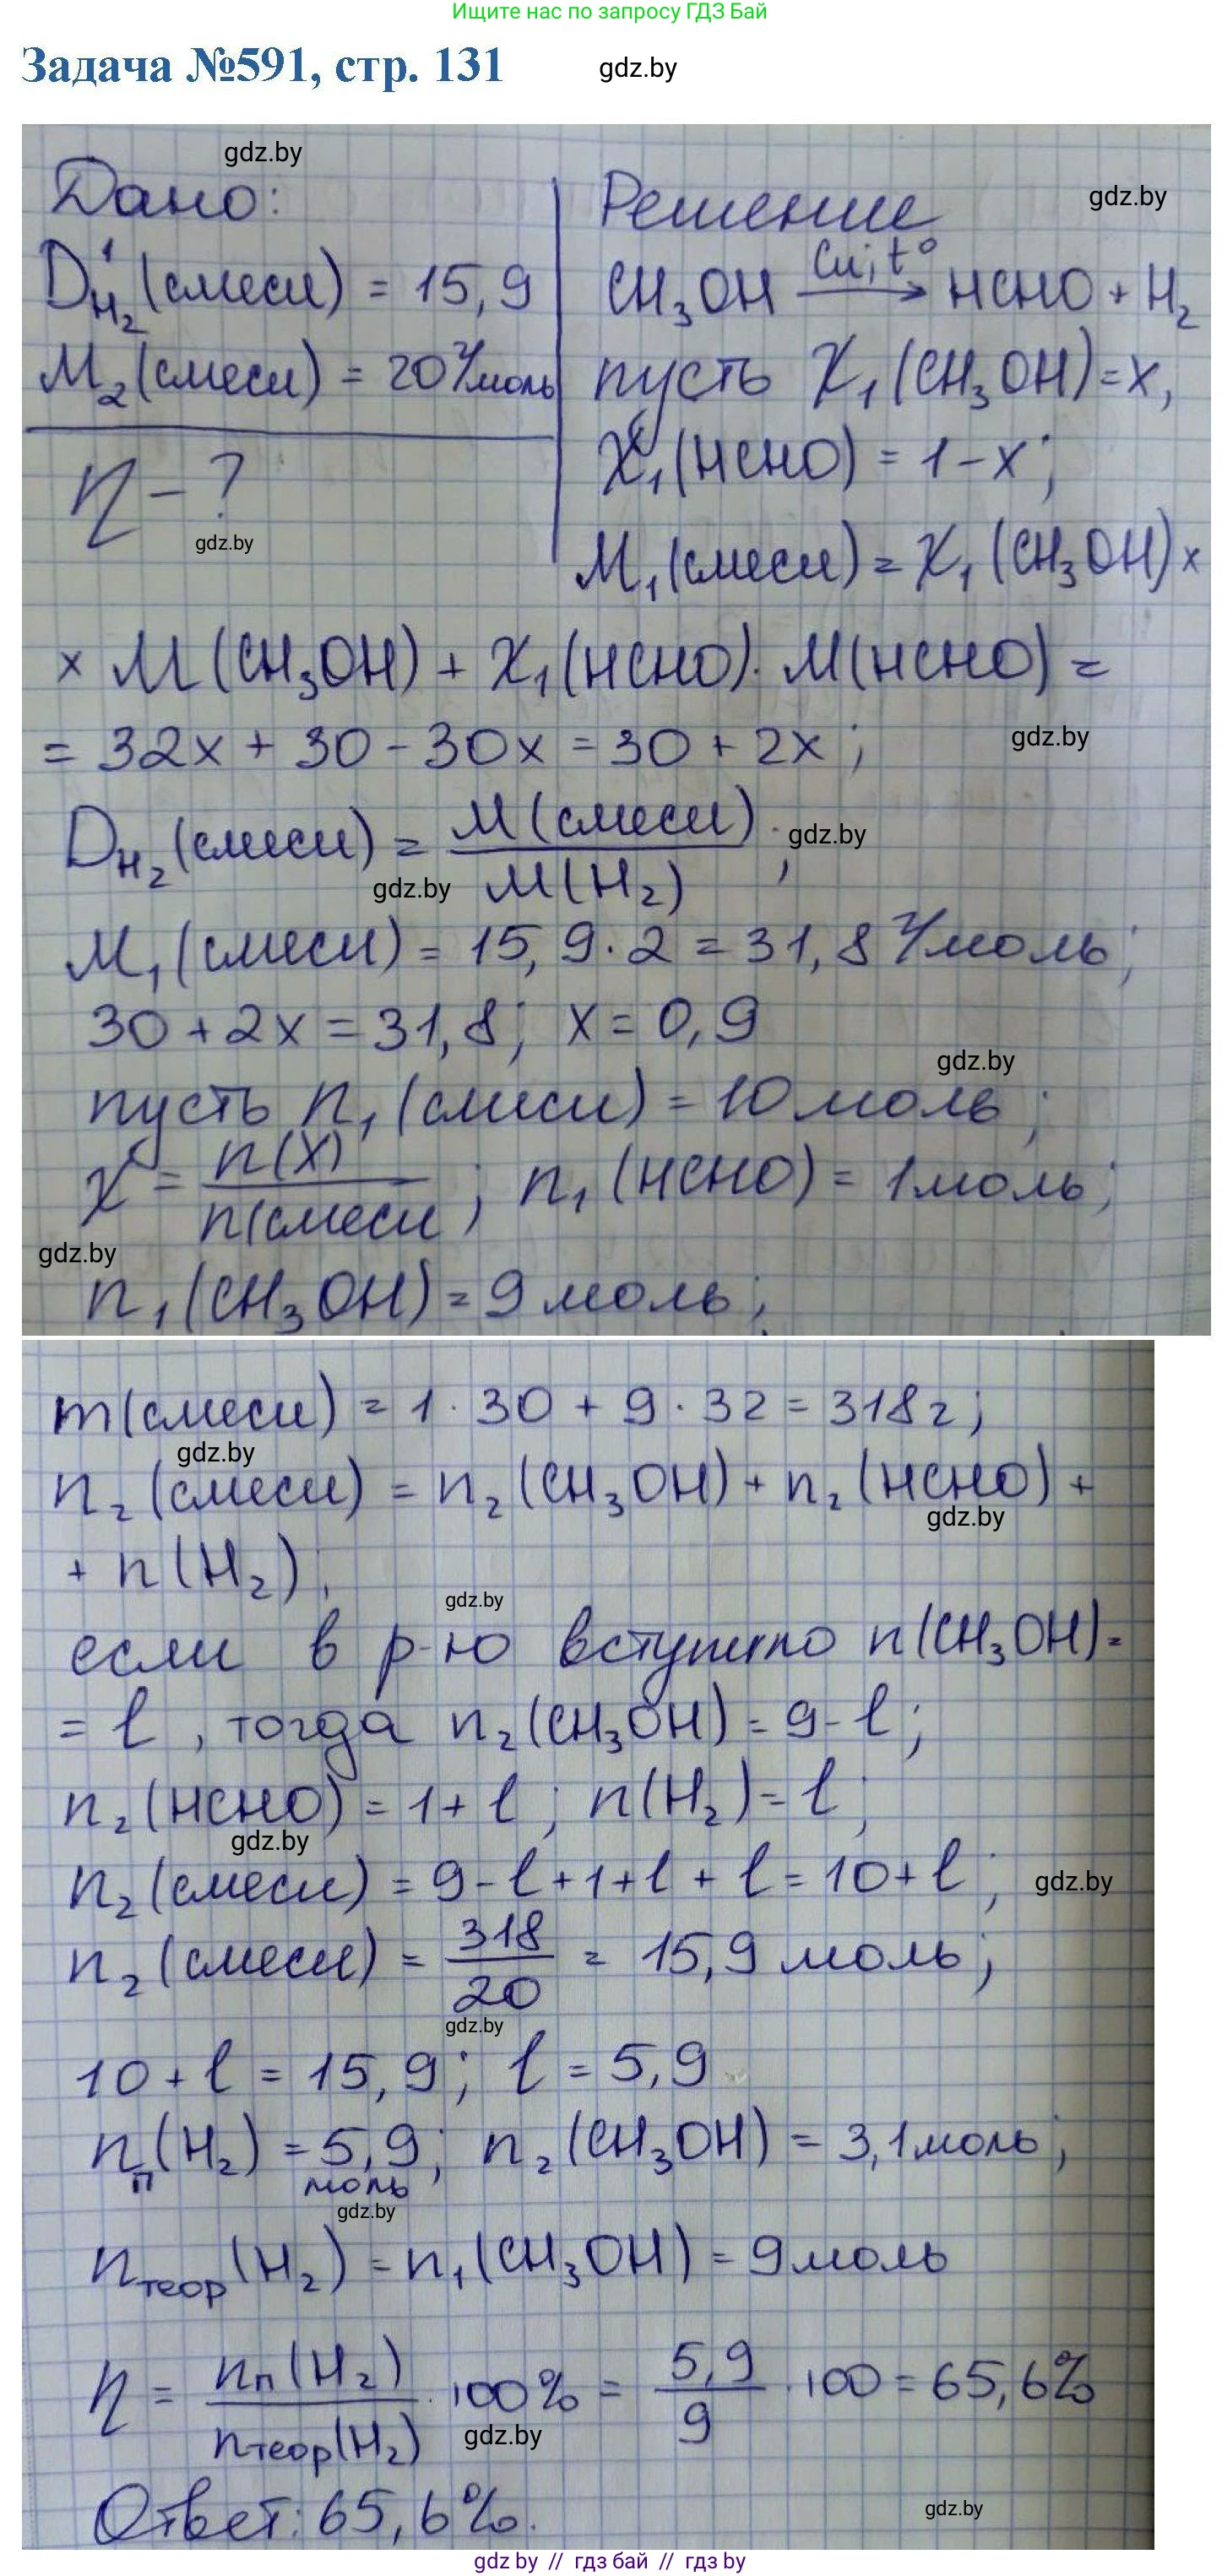 Ищите нас по запросу ГДЗ Бай
Задача №591, стр. 131 gdz.by
gdz.by
Дано: Решение gdz.by
D¹H₂(смеси) = 15,9 CH₃OH —Cu, t°→ HCHO + H₂
M₂(смеси) = 20 г/моль пусть χ₁(CH₃OH)=x,
η - ? χ₁(HCHO) = 1-x;
gdz.by
M₁(смеси) = χ₁(CH₃OH)×
× M(CH₃OH) + χ₁(HCHO)·M(HCHO) =
= 32x + 30 - 30x = 30 + 2x; gdz.by
DH₂(смеси) = M(смеси) / M(H₂); gdz.by
gdz.by
M₁(смеси) = 15,9·2 = 31,8 г/моль;
30 + 2x = 31,8; x = 0,9
gdz.by
пусть n₁(смеси) = 10 моль;
χ = n(X) / n(смеси; n₁(HCHO) = 1 моль;
gdz.by
n₁(CH₃OH) = 9 моль;
m(смеси) = 1·30 + 9·32 = 318 г;
gdz.by
n₂(смеси) = n₂(CH₃OH) + n₂(HCHO) +
gdz.by
+ n(H₂);
gdz.by
если в р-ю вступило n(CH₃OH)=
= l, тогда n₂(CH₃OH) = 9-l;
n₂(HCHO) = 1+l; n(H₂)=l;
gdz.by
n₂(смеси) = 9-l+1+l+l = 10+l; gdz.by
n₂(смеси) = 318 / 20 = 15,9 моль;
gdz.by
10 + l = 15,9; l = 5,9
nп(H₂) = 5,9; n₂(CH₃OH) = 3,1 моль;
моль
gdz.by
nтеор(H₂) = n₁(CH₃OH) = 9 моль
η = nп(H₂) / nтеор(H₂) · 100% = 5,9 / 9 · 100 = 65,6%
gdz.by
Ответ: 65,6%.
gdz.by
gdz by // гдз бай // гдз by